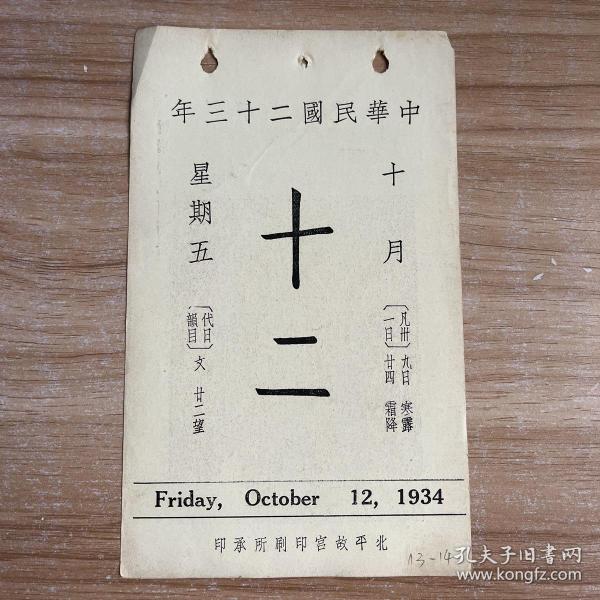 中華民國二十三年
十月
十二
星期五
〔凡卅一日〕
九日 寒露
廿四 霜降
〔代日韻目〕
文 廿二望
Friday, October 12, 1934
北平故宮印刷所承印
13-14
孔夫子旧书网
www.kongfz.com